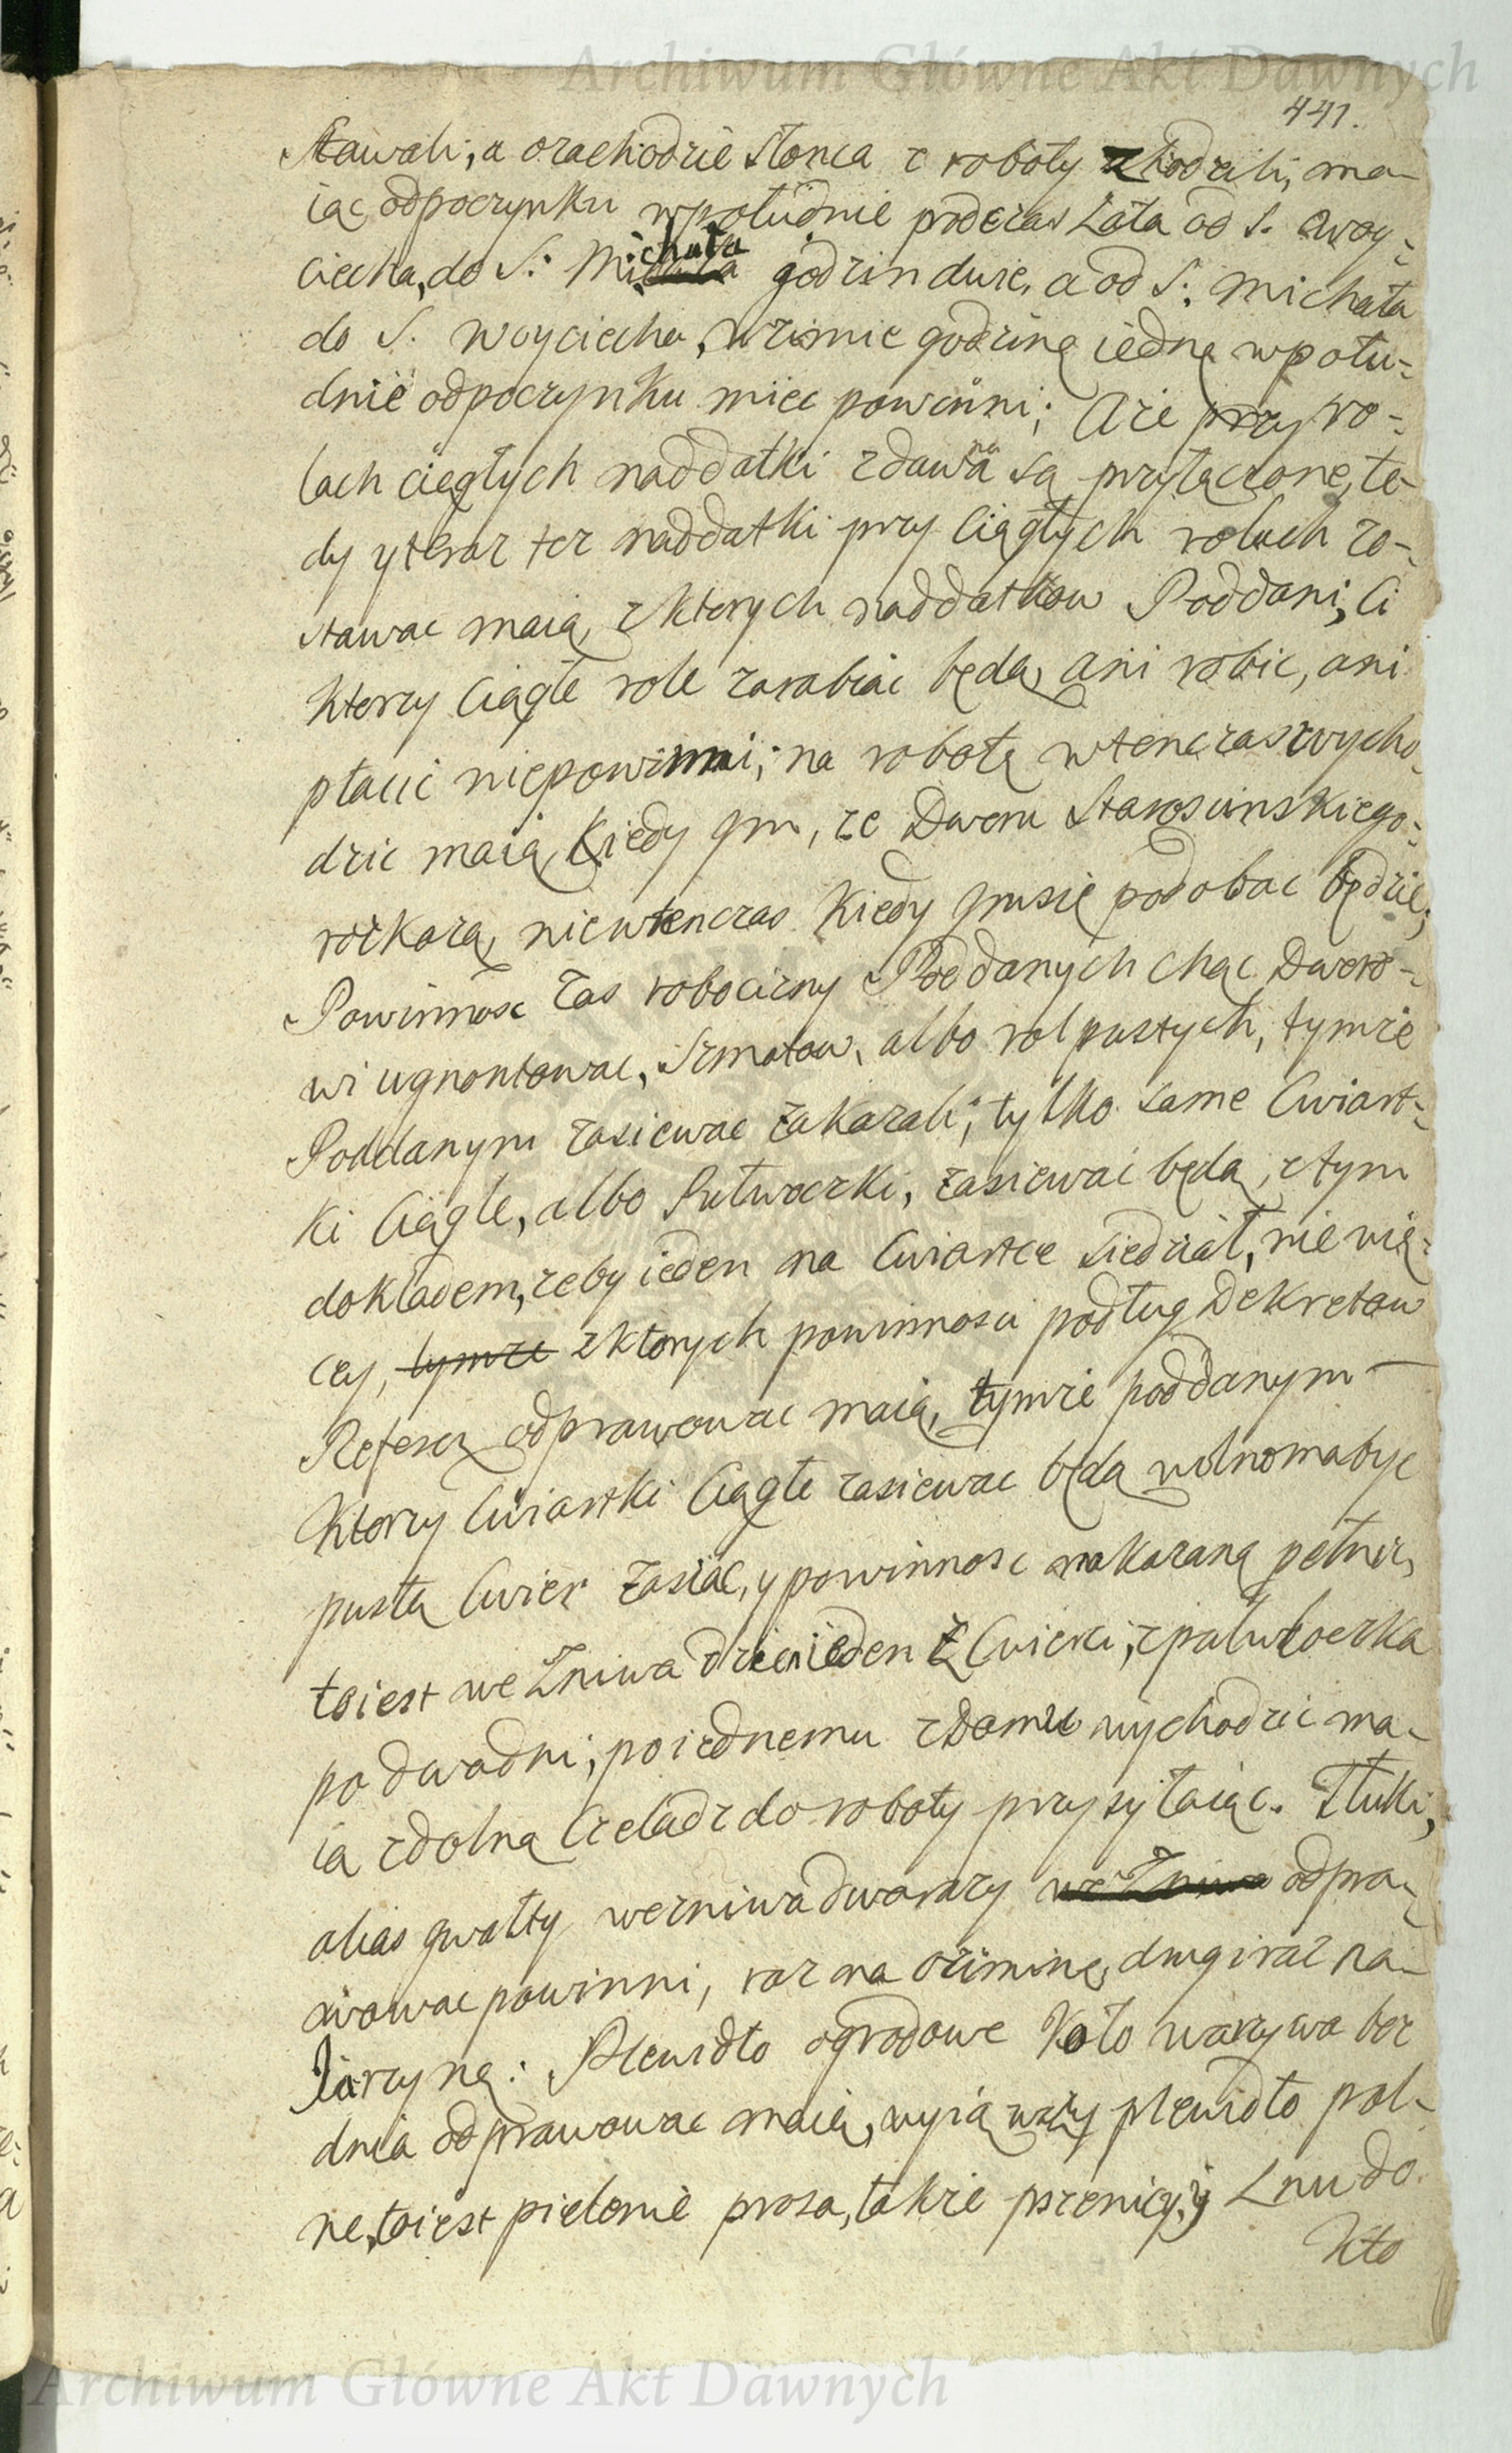 Archiwum Główne Akt Dawnych
441.
stawali; a ozachodzie słonca z roboty zchodzili, ma-
iąc odpoczynku wpołudnie podczas Lata od S. Woy-
ciecha, do S: Michała godzin dwie, a od S: Michała
do S. Woyciecha, wzimie godzinę iednę wpołu-
dnie odpoczynku miec powinni; Aże przy ro-
lach ciągłych naddatki zdawna są przyłączone, te-
dy yteraz tez naddatki przy Ciągłych rolach zo-
stawac maią, z ktorych naddatkow Poddani, Ci
ktorzy Ciągłe role zarabiac będą, ani robic, ani
płacic niepowinni; na robotę wtenczas wycho-
dzic maią, Kiedy ym, ze Dworu Staroscinskiego
rozkażą, niewtenczas Kiedy ymsię podobac będzie;
Powinnosc zas robocizny Poddanych chąc Dworo-
wi ugnontowac, Szmatow, albo rol pustych, tymże
Poddanym zasiewac zakazali; tylko same Cwiart-
ki Ciągłe, albo Pułwoczki, zasiewac będą, ztym
dokładem, zeby ieden na Cwiartce siedział, niewię-
cey, z ktorych powinnosci podług Dekretow
Refery odprawowac maią, tymże poddanym
Ktorzy Cwiartki Ciągłe zasiewac będą wolnomabyc
pustą Cwierc zasiac, y powinnosc nakazaną pełnic,
toiest we Zniwa dzien ieden z Cwierci, z pułwłoczka
po dwadni, po iednemu zDomu wychodzic ma-
ią zdolną Czeladz do roboty przysyłaiąc. Tłuki,
alias gwałty wezniwa dwarazy odpra-
wowac powinni, raz na oziminę, drugi raz na
Jarzynę: Plewidło ogrodowe Koło warzywa bez
dnia odprawowac maią, wyiąwszy plewidło pol-
ne, toiest pielenie prosa, także pszenicy, y Lnu do
Kto
Archiwum Główne Akt Dawnych